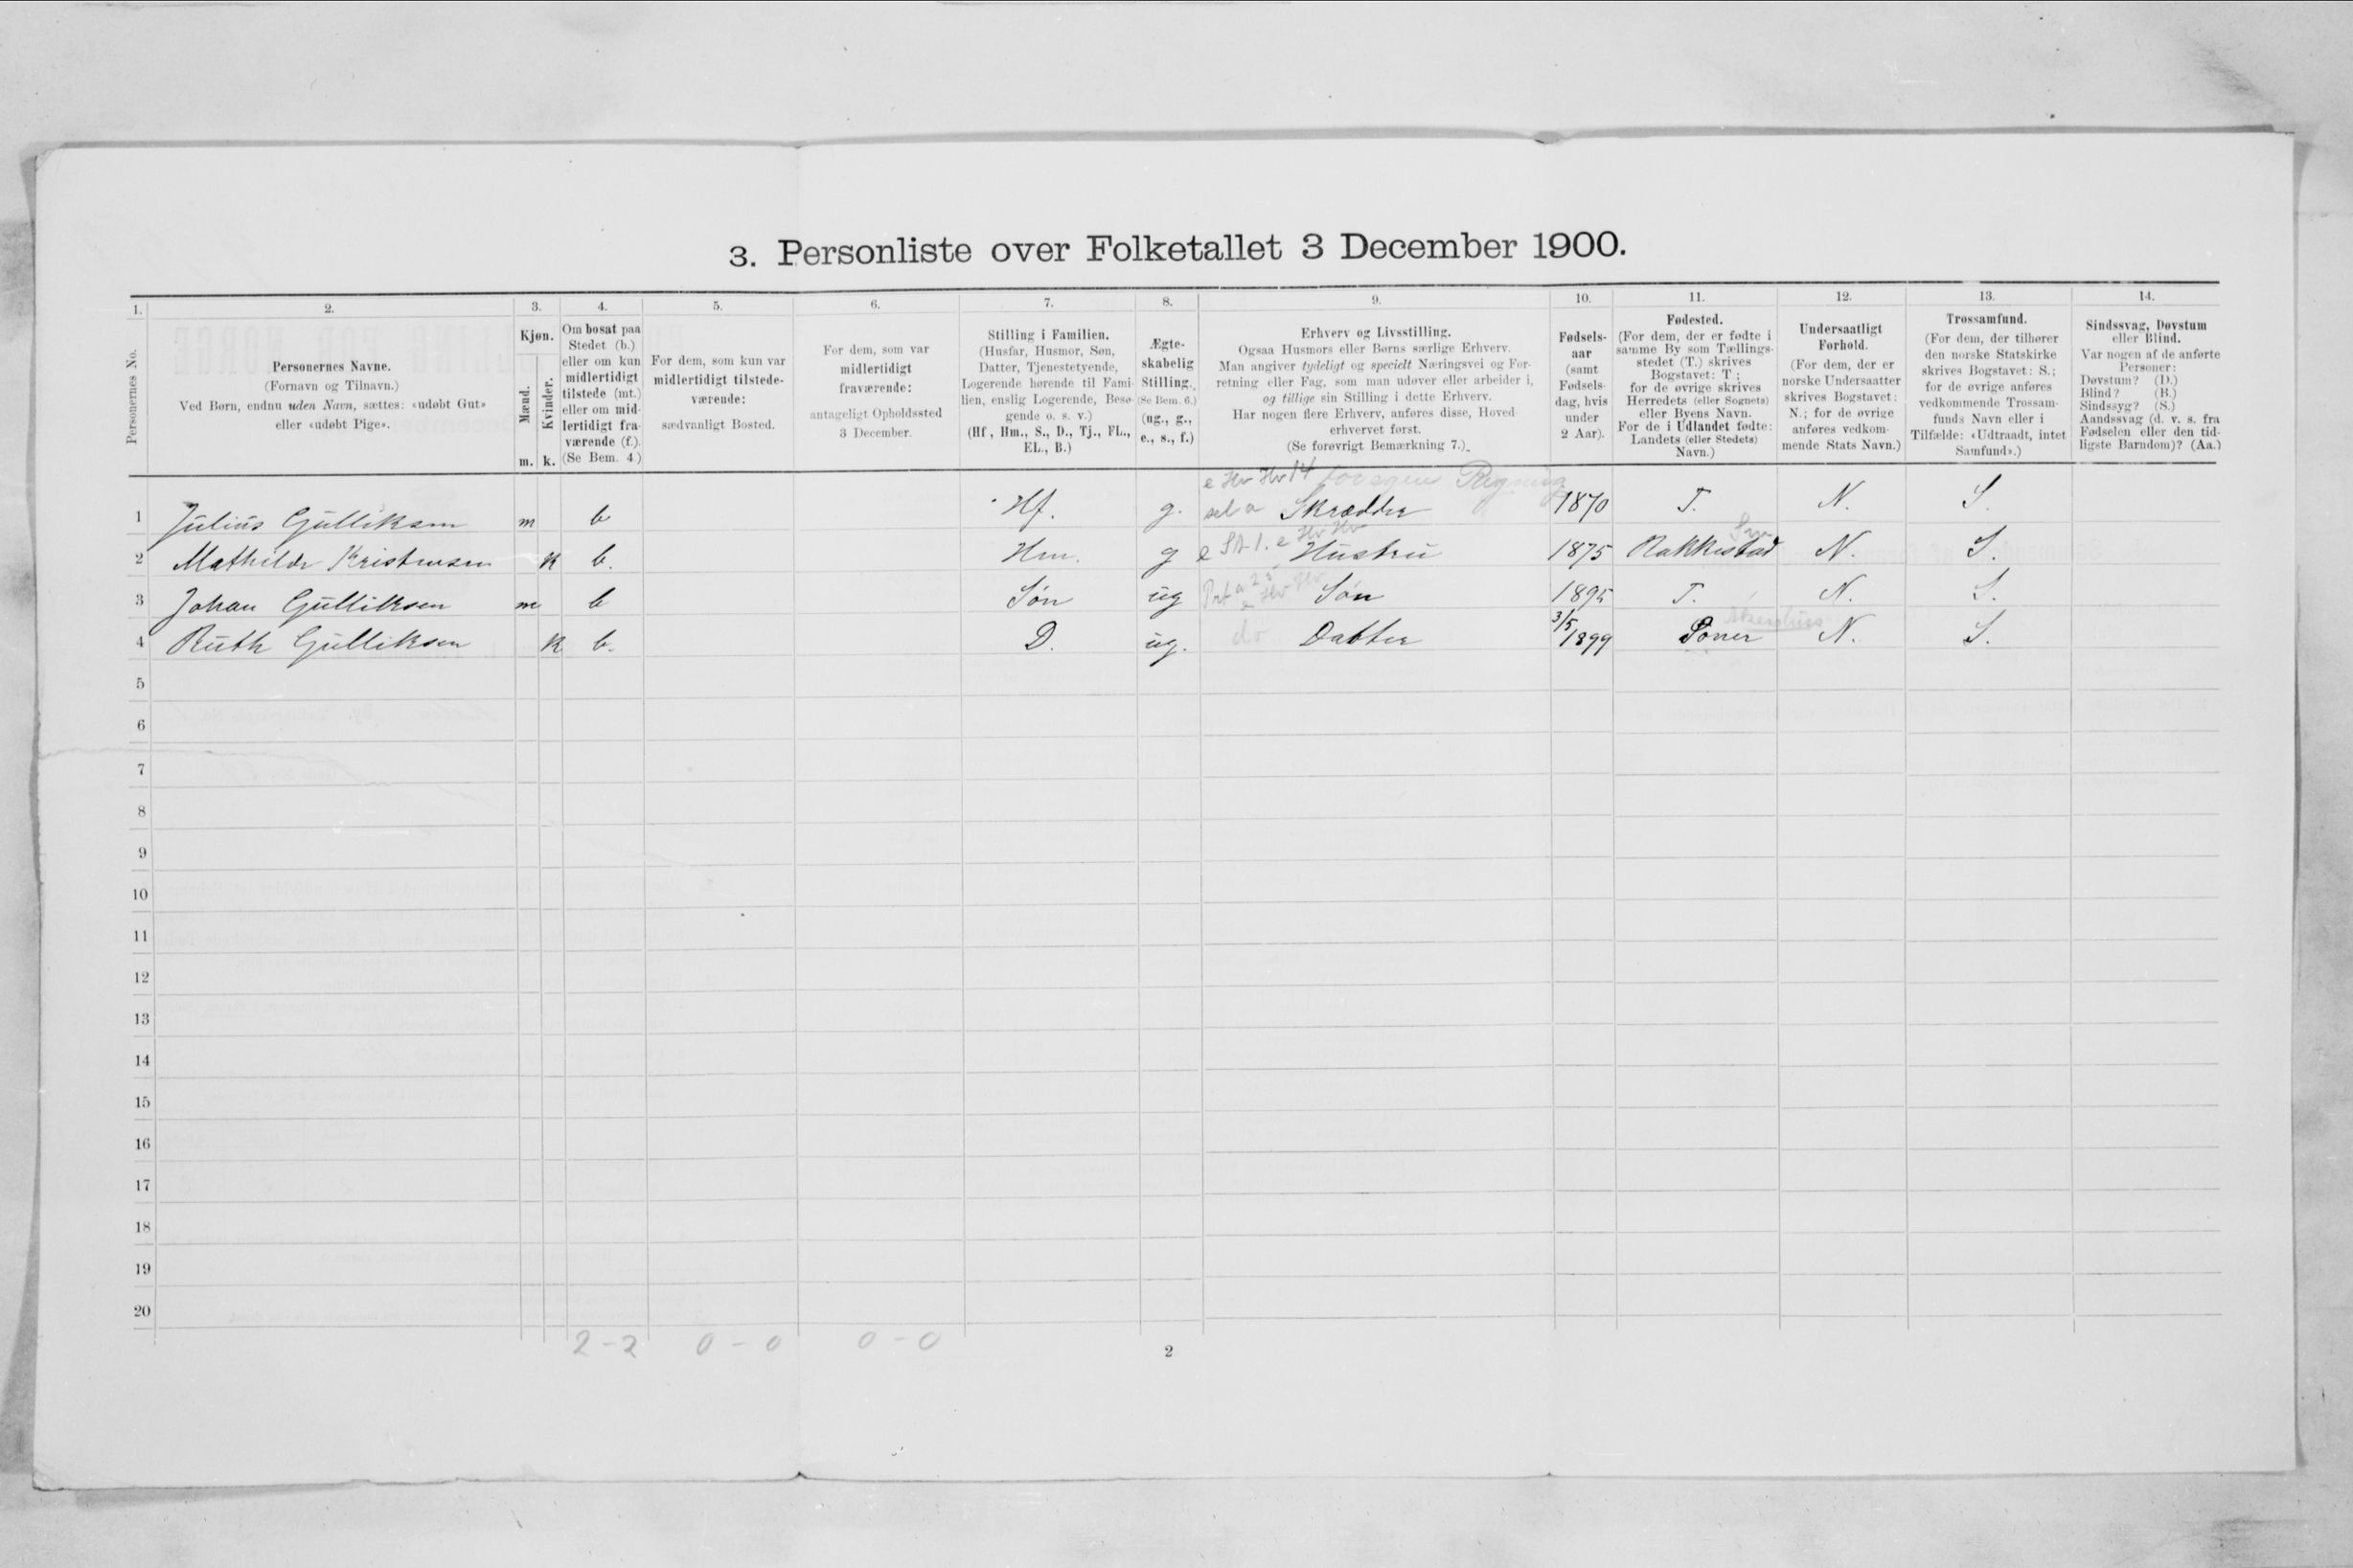 3. Personliste over Folketallet 3 December 1900.
1. 2. 3. 4. 5. 6. 7. 8. 9. 10. 11. 12. 13. 14.
Personernes No.
Personernes Navne.
(Fornavn og Tilnavn.)
Ved Børn, endnu uden Navn, sættes: «udøbt Gut»
eller «udøbt Pige».
Kjøn.
Mænd.
Kvinder.
m. k.
Om bosat paa
Stedet (b.)
eller om kun
midlertidigt
tilstede (mt.)
eller om mid-
lertidigt fra-
værende (f.).
(Se Bem. 4.)
For dem, som kun var
midlertidigt tilstede-
værende:
sædvanligt Bosted.
For dem, som var
midlertidigt
fraværende:
antageligt Opholdssted
3 December.
Stilling i Familien.
(Husfar, Husmor, Søn,
Datter, Tjenestetyende,
Logerende hørende til Fami-
lien, enslig Logerende, Besø-
gende o. s. v.)
(Hf., Hm., S., D., Tj., FL.,
EL., B.)
Ægte-
skabelig
Stilling.
(Se Bem. 6.)
(ug., g.,
e., s., f.)
Erhverv og Livsstilling.
Ogsaa Husmors eller Børns særlige Erhverv.
Man angiver tydeligt og specielt Næringsvei og For-
retning eller Fag, som man udøver eller arbeider i,
og tillige sin Stilling i dette Erhverv.
Har nogen flere Erhverv, anføres disse, Hoved-
erhvervet først.
(Se forøvrigt Bemærkning 7.)
Fødsels-
aar
(samt
Fødsels-
dag, hvis
under
2 Aar).
Fødested.
(For dem, der er fødte i
samme By som Tællings-
stedet (T.) skrives
Bogstavet: T;
for de øvrige skrives
Herredets (eller Sognets)
eller Byens Navn.
For de i Udlandet fødte:
Landets (eller Stedets)
Navn.)
Undersaatligt
Forhold.
(For dem, der er
norske Undersaatter
skrives Bogstavet:
N.; for de øvrige
anføres vedkom-
mende Stats Navn.)
Trossamfund.
(For dem, der tilhører
den norske Statskirke
skrives Bogstavet: S.;
for de øvrige anføres
vedkommende Trossam-
funds Navn eller i
Tilfælde: «Udtraadt, intet
Samfund».)
Sindssvag, Døvstum
eller Blind.
Var nogen af de anførte
Personer:
Døvstum? (D.)
Blind? (B.)
Sindssyg? (S.)
Aandssvag (d. v. s. fra
Fødselen eller den tid-
ligste Barndom)? (Aa.)
e Hv Hv 14 for egen Regning
1 Julius Gulliksen m b Hf. g. sel a Skrædder 1870 T. N. S.
2 Mathilde Kristensen k b. Hm. g e St 1. e Hv Hv Hustru 1875 Rakkestad N. S.
3 Johan Gulliksen m b Søn ug e Hv Hv Søn 1895 T. N. S.
4 Ruth Gulliksen k b. D. ug. do Datter 3/5 1899 N. S.
5
6
7
8
9
10
11
12
13
14
15
16
17
18
19
20
2-2 0-0 0-0
2